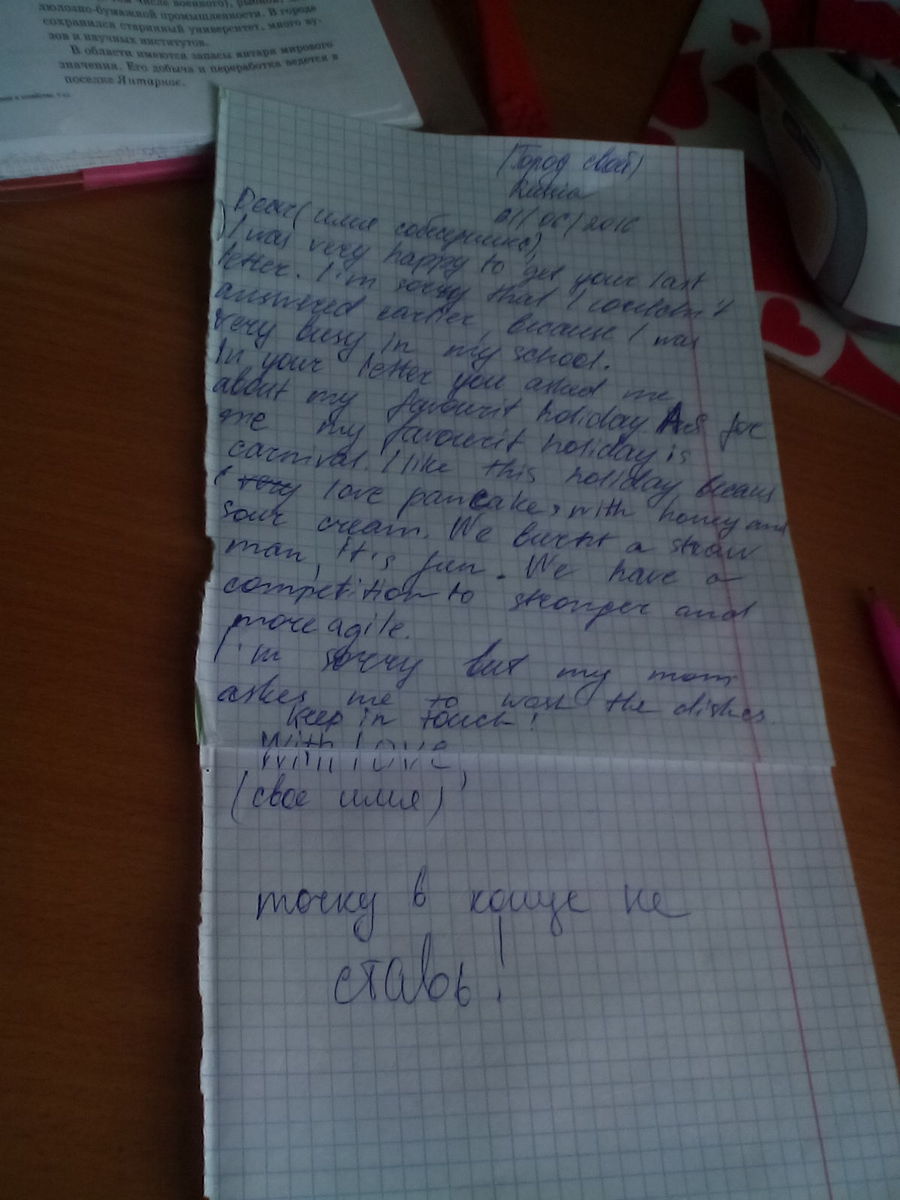 числе военного), рыбной,
люлозно-бумажной промышленности. В городе
сохранился старинный университет, много ву-
зов и научных институтов.
В области имеются запасы янтаря мирового
значения. Его добыча и переработка ведется в
поселке Янтарное.
(Город свой)
Russia
01/06/2016
Dear (имя собеседника),
I was very happy to get your last
letter. I'm sorry that I couldn't
answered earlier because I was
very busy in my school.
In your letter you asked me
about my favourit holiday. As for
me my favourit holiday is
carnival. I like this holiday becaus
I very love pancakes with honey and
sour cream. We burnt a straw
man, It is fun. We have a
competition to stronger and
more agile.
I'm sorry but my mom
askes me to wash the dishes.
Keep in touch!
With love,
(свое имя)
точку в конце не
ставь!